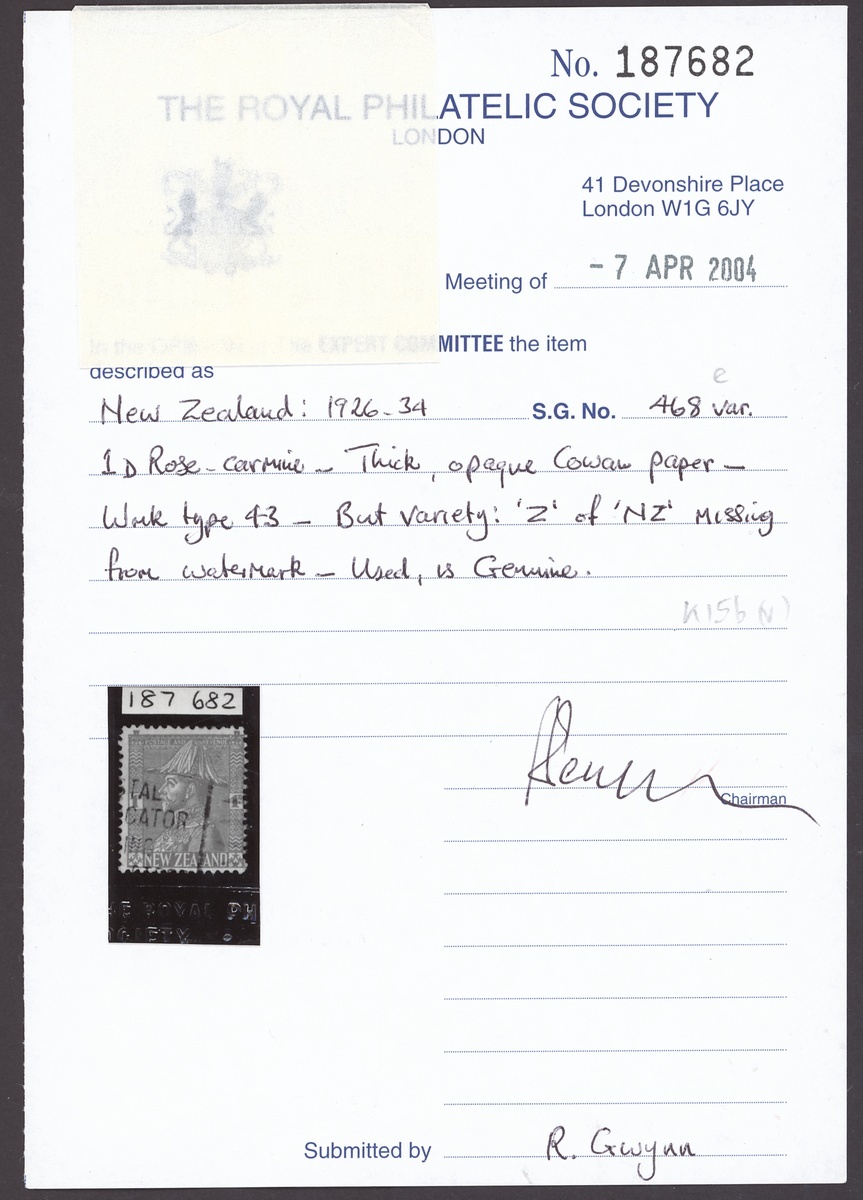 No. 187682
THE ROYAL PHILATELIC SOCIETY
LONDON
41 Devonshire Place
London W1G 6JY
Meeting of - 7 APR 2004
In the OPINION of the EXPERT COMMITTEE the item
described as
e
New Zealand: 1926-34 S.G. No. 468 var.
1D Rose-carmine - Thick, opaque Cowan paper -
Wmk type 43 - But variety: 'Z' of 'NZ' missing
from watermark - Used, is Genuine.
K15b(v)
187 682
TAL
CATOR
NEW ZEALAND
THE ROYAL PH
SOCIETY
Chairman
Submitted by R. Gwynn